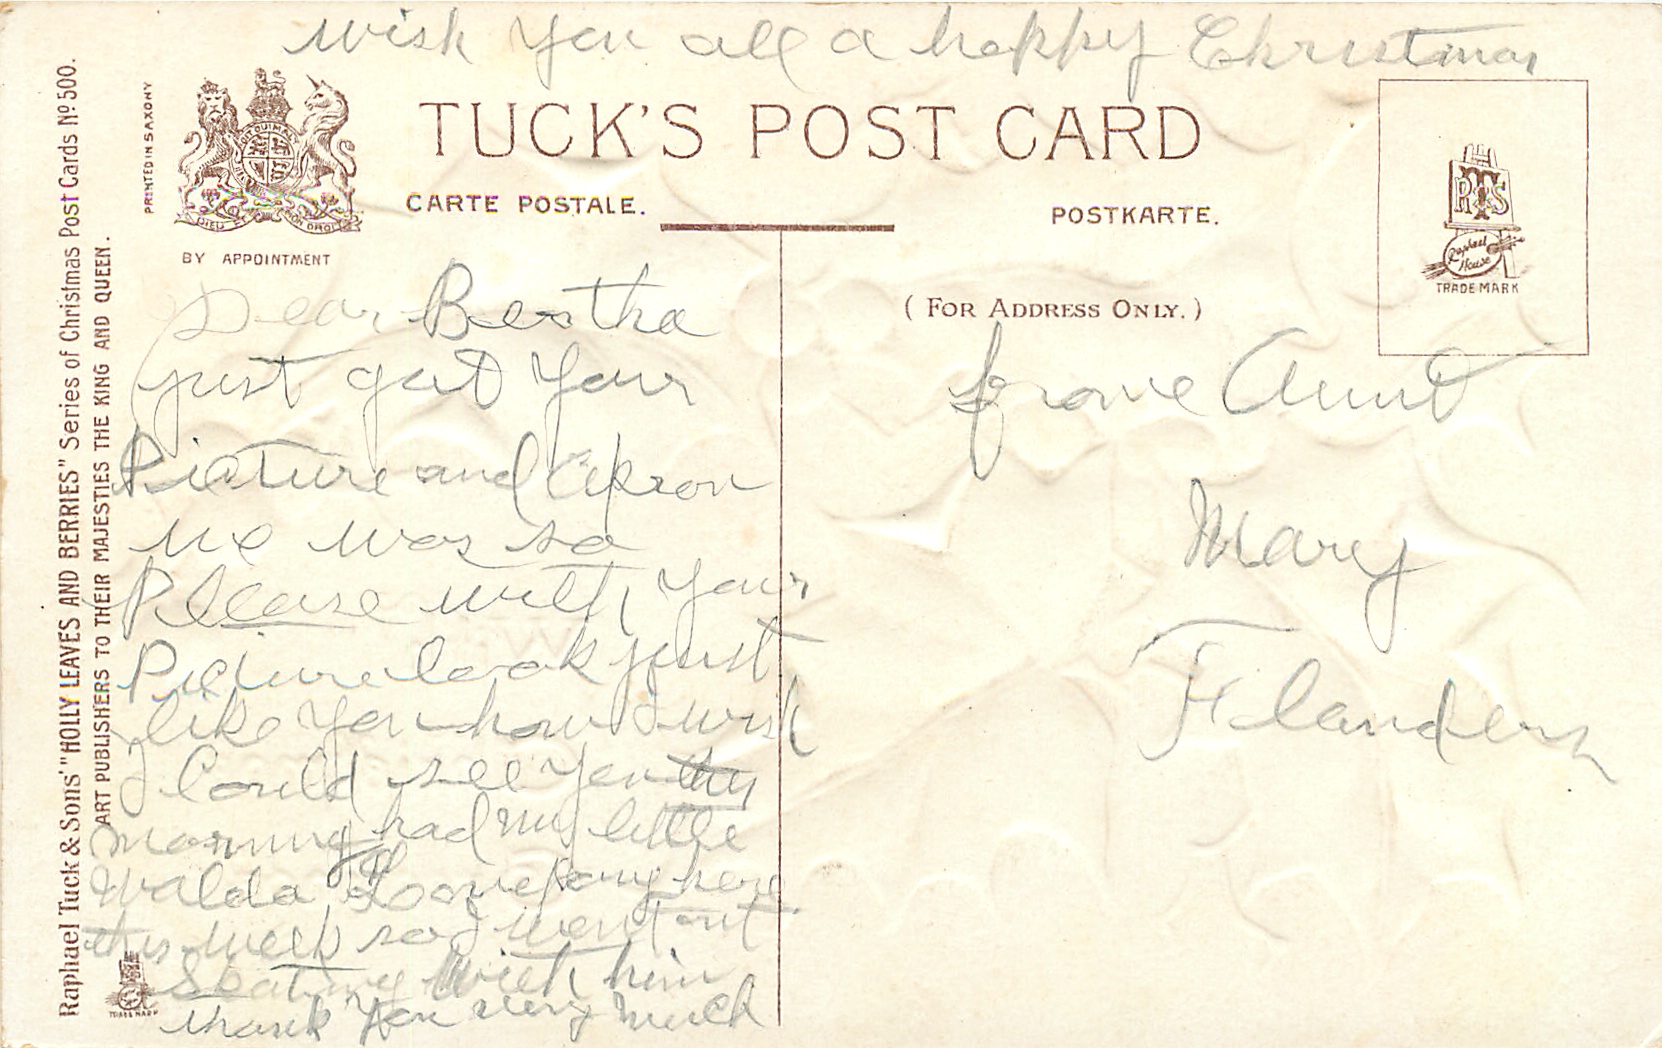 wish you all a happy Christmas
TUCK'S POST CARD
CARTE POSTALE.
POSTKARTE.
BY APPOINTMENT
PRINTED IN SAXONY
Raphael Tuck & Sons' "HOLLY LEAVES AND BERRIES" Series of Christmas Post Cards No 500.
ART PUBLISHERS TO THEIR MAJESTIES THE KING AND QUEEN.
(FOR ADDRESS ONLY.)
RTS
Raphael House
TRADE MARK
Dear Bertha
just got your
Picture and Apron
we was so
Please with your
Picture look just
like you how I wish
I Could see you
morning had my little
Walda here
this week so I went out
Skating With him
thank you very much
TRADE MARK
frome Aunt
Mary
Flanders